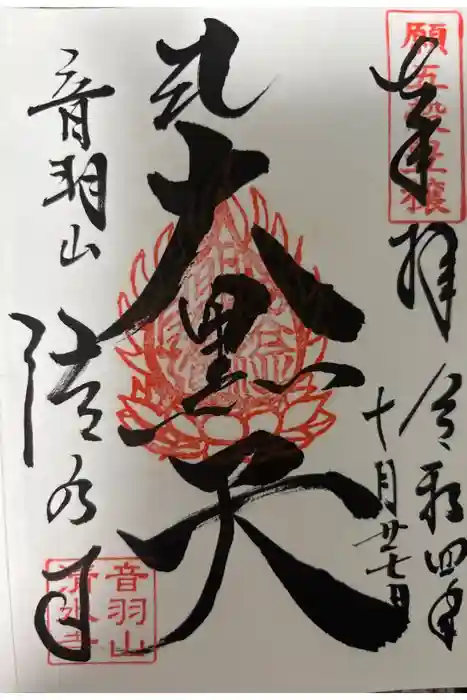 願五穀豊穣
奉拝
令和四年
十月廿七日
大黒天
音羽山 清水寺
音羽山
清水寺